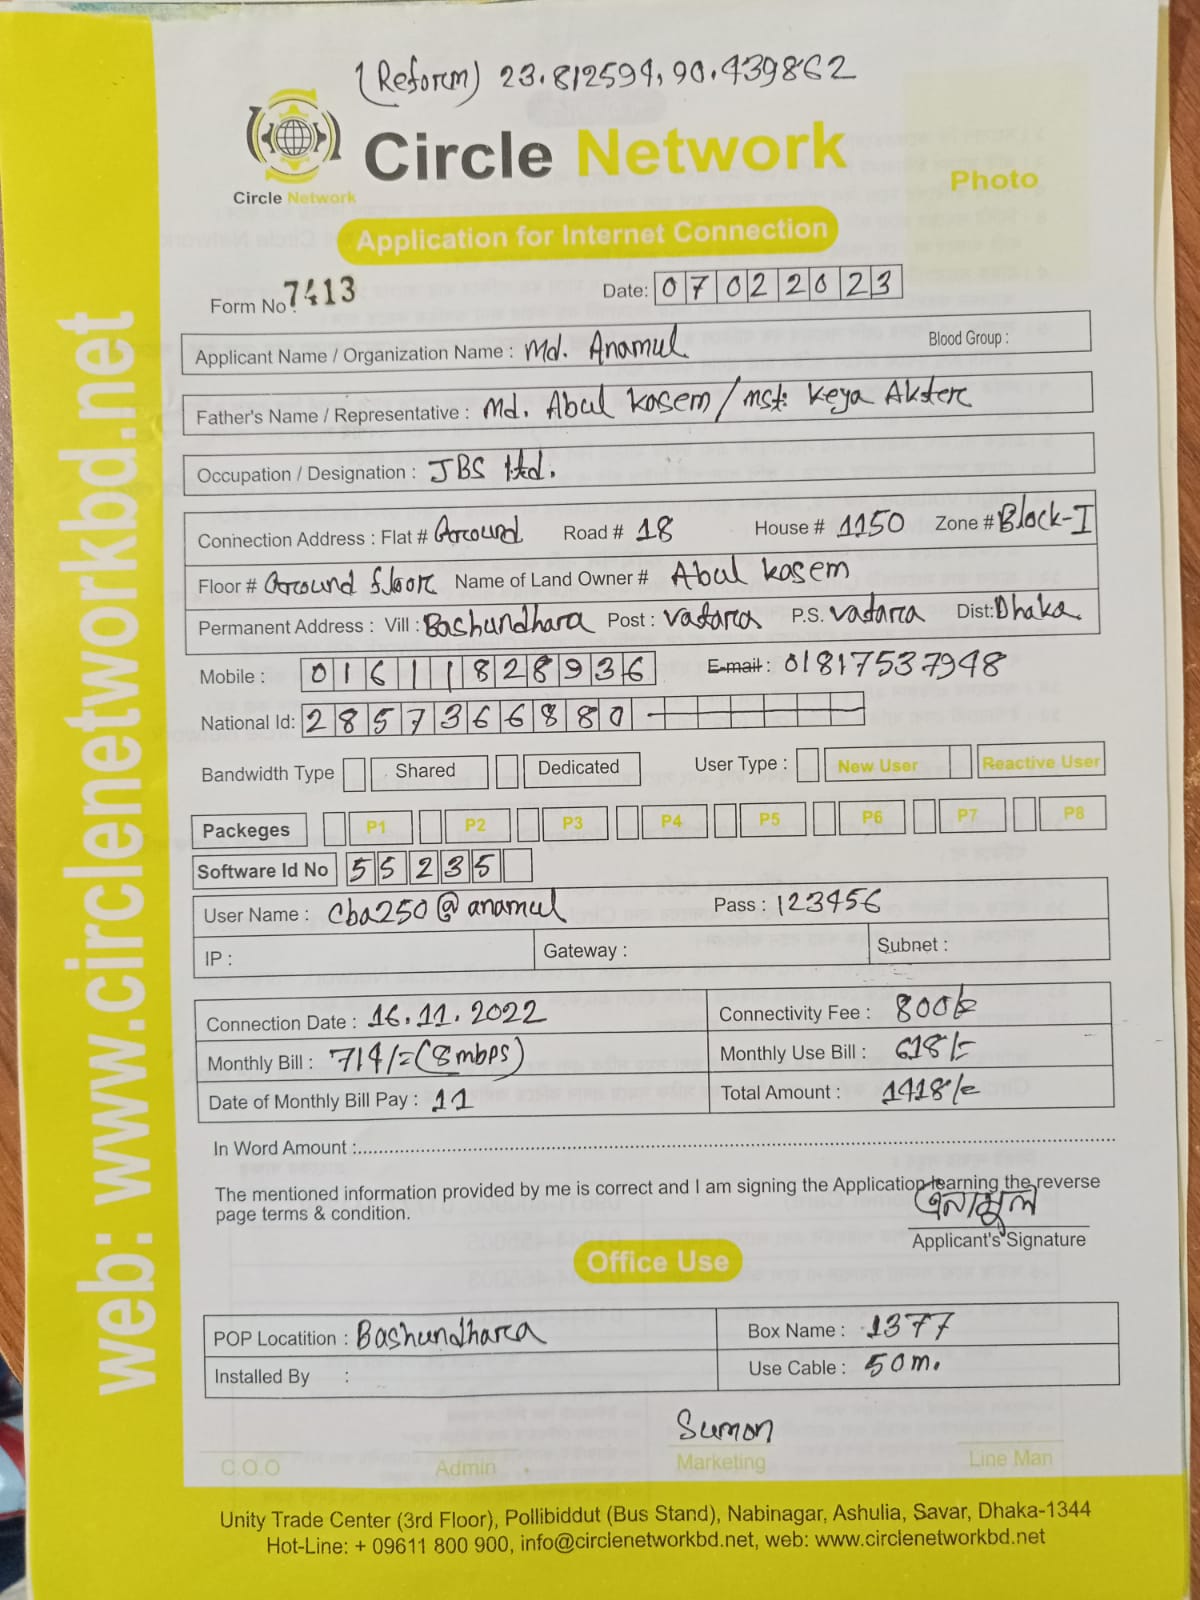 (Reform) 23.812594, 90.439862
Circle Network
Circle Network
Photo
Application for Internet Connection
Form No: 7413 Date: 07022023
Applicant Name / Organization Name : Md. Anamul Blood Group :
Father's Name / Representative : Md. Abul Kasem / mst: Keya Akter
Occupation / Designation : JBS ltd.
Connection Address : Flat # Ground Road # 18 House # 1150 Zone # Block-I
Floor # Ground floor Name of Land Owner # Abul Kasem
Permanent Address : Vill : Bashundhara Post : Vatara P.S. Vatara Dist: Dhaka
Mobile : 01611828936 E-mail : 01817537948
National Id: 2857366880
Bandwidth Type Shared Dedicated User Type : New User Reactive User
Packeges P1 P2 P3 P4 P5 P6 P7 P8
Software Id No 55235
User Name : Cba250@anamul Pass : 123456
IP : Gateway : Subnet :
Connection Date : 16.11.2022 Connectivity Fee : 800/=
Monthly Bill : 714/= (8mbps) Monthly Use Bill : 618/=
Date of Monthly Bill Pay : 11 Total Amount : 1418/=
In Word Amount :
The mentioned information provided by me is correct and I am signing the Application learning the reverse
page terms & condition.
এনামুল
Applicant's Signature
Office Use
POP Locatition : Bashundhara Box Name : 1377
Installed By : Use Cable : 50m.
Sumon
C.O.O Admin Marketing Line Man
Unity Trade Center (3rd Floor), Pollibiddut (Bus Stand), Nabinagar, Ashulia, Savar, Dhaka-1344
Hot-Line: + 09611 800 900, info@circlenetworkbd.net, web: www.circlenetworkbd.net
web: www.circlenetworkbd.net